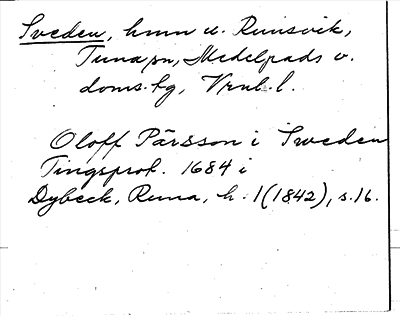 Sveden, hmn u. Runsvik,
Tuna sn, Medelpads v.
doms.hg, Vrnl. l.
Oloff Pärsson i Sweden
Tingsprot. 1684 i
Dybeck, Runa, h. 1(1842), s.16.